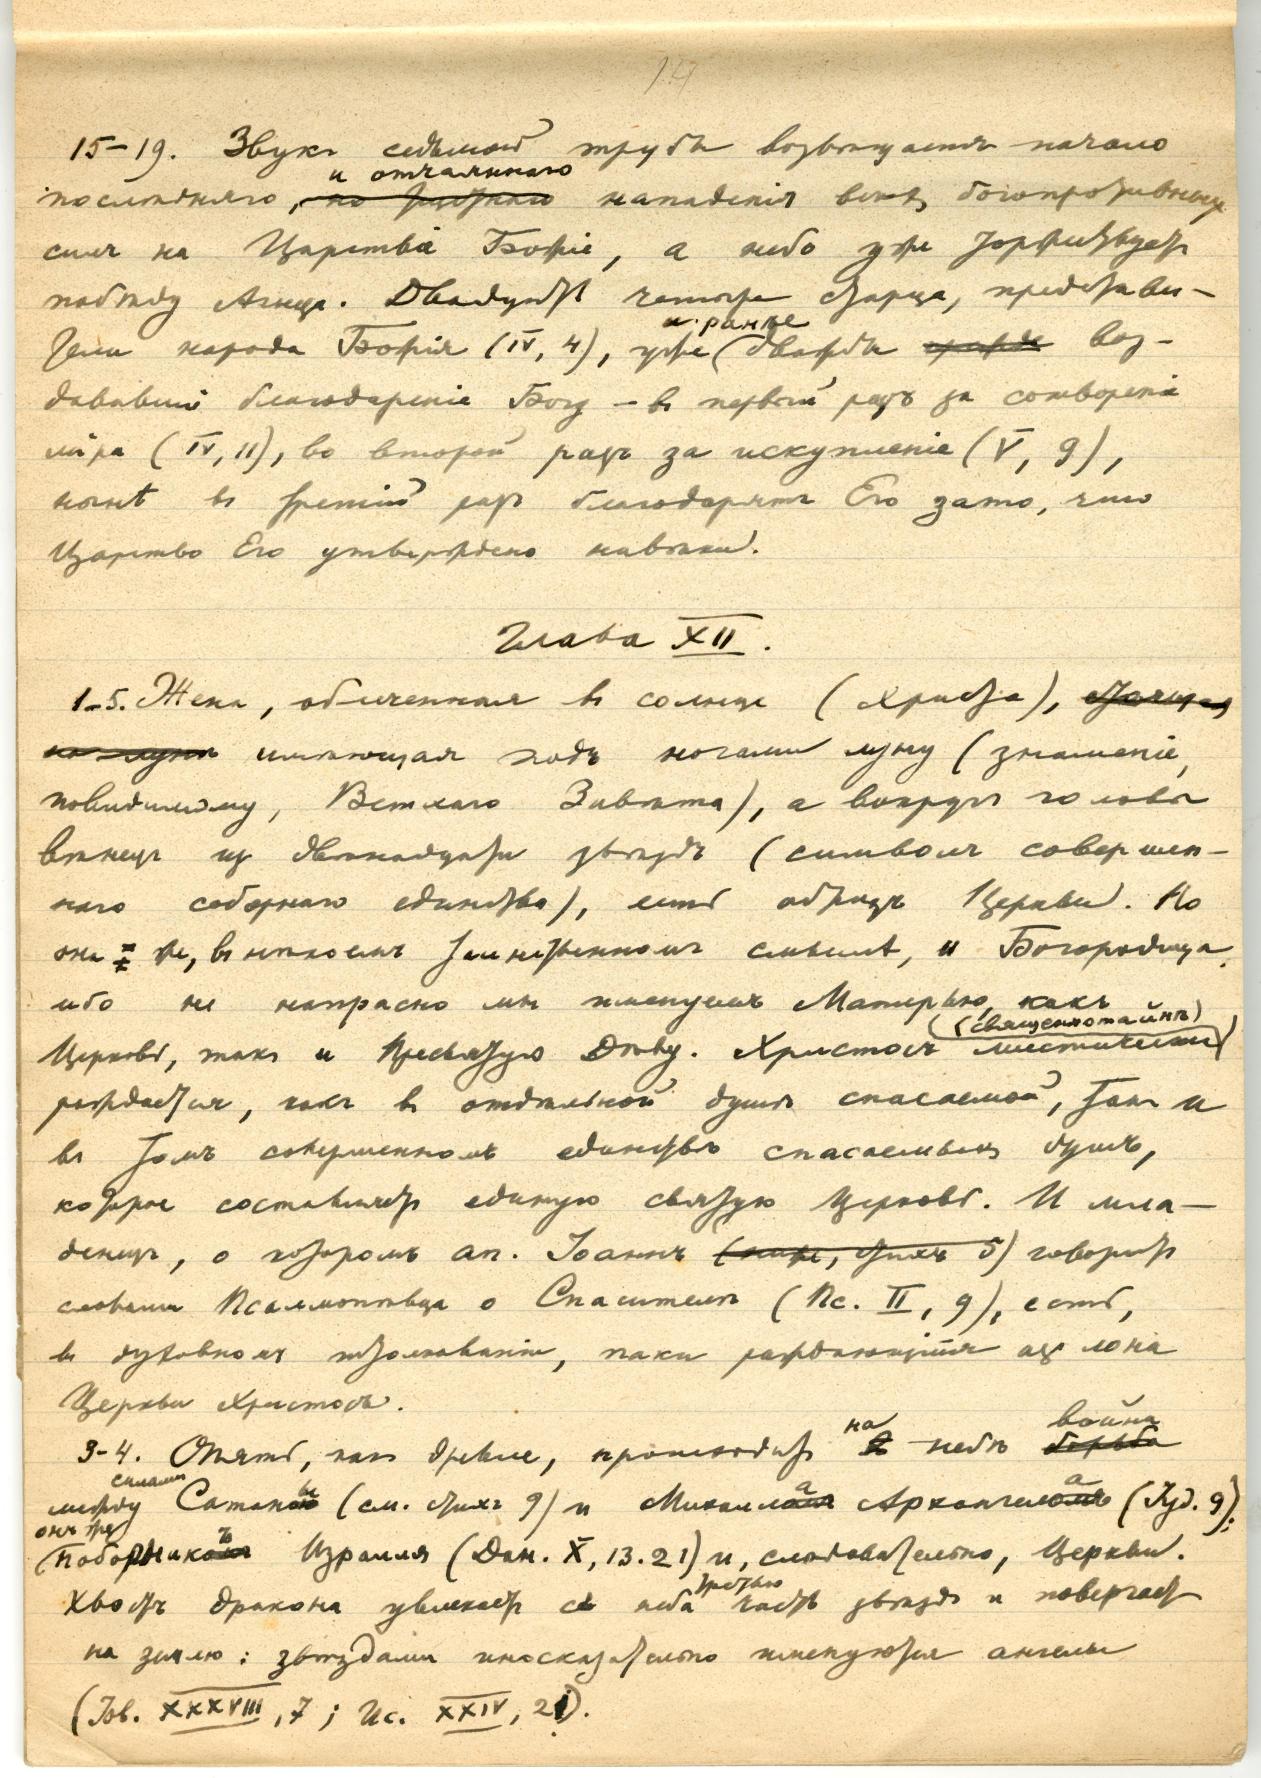 14
15–19. Звукъ седьмой трубы возвѣщаетъ начало
и отчаяннаго
послѣдняго, нападенія всѣхъ богопротивныхъ
силъ на Царствіе Божіе, а небо уже торжествуетъ
побѣду Агнца. Двадцать четыре старца, представи–
тели народа Божія (IV, 4), уже (и ранѣе дважды воз–
дававшій благодареніе Богу – въ первый разъ за сотвореніе
міра (IV, 11), во второй разъ за искупленіе (V, 9),
нынѣ въ третій разъ благодарятъ Его за то, что
Царство Его утверждено навѣки.
Глава XII.
1–5. Жена, облеченная въ солнце (Христа), стоящая
на лунѣ имѣющая подъ ногами луну (знаменіе,
повидимому, Ветхаго Завѣта), а вокругъ головы
вѣнецъ изъ двѣнадцати звѣздъ (символъ совершен–
наго соборнаго единства), есть образъ Церкви. Но
она же, въ нѣкоемъ таинственномъ смыслѣ, и Богородица,
ибо не напрасно мы именуемъ Матерью, какъ
(священнотайнѣ)
Церковь, такъ и Пресвятую Дѣву. Христосъ мистически
рождается, какъ въ отдѣльной душѣ спасаемой, такъ и
въ томъ совершенномъ единствѣ спасаемыхъ душъ,
которое составляетъ единую святую Церковь. И мла–
денецъ, о которомъ ап. Іоаннъ (ниже, стихъ 5) говоритъ
словами Псалмопѣвца о Спасителѣ (Пс. II, 9), есть,
въ духовномъ толкованіи, паки рождающійся изъ лона
Церкви Христосъ.
на война
3–4. Опять, какъ древле, происходитъ небѣ борьба
силами
между Сатаны (см. стихъ 9) и Михаила Архангела (Іуд. 9);
онъ же
(поборникъ Израиля (Дан. X, 13.21) и, слѣдовательно, Церкви.
третью
Хвостъ дракона увлекаетъ съ неба часть звѣздъ и повергаетъ
на землю: звѣздами иносказательно именуются ангелы
(Іов. XXXVIII, 7; Ис. XXIV, 21).